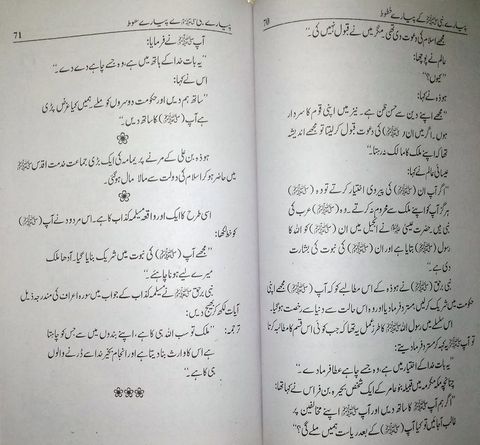 70
پیارے نبی ﷺ کے پیارے خطوط
مجھے اسلام کی دعوت دی تھی۔ مگر میں نے قبول نہیں کی۔"
عالم نے پوچھا:
"کیوں؟"
ہوذہ نے کہا:
"مجھے اپنے دین سے حسن ظن ہے۔ نیز میں اپنی قوم کا سردار
ہوں۔ اگر میں ان (ﷺ) کی دعوت قبول کر لیتا تو مجھے اندیشہ
تھا کہ اپنے ملک کا مالک نہ رہتا۔"
عیسائی عالم نے کہا:
"اگر آپ ان (ﷺ) کی پیروی اختیار کرتے تو وہ (ﷺ)
ہرگز آپ کو اپنے ملک سے محروم نہ کرتے۔ وہ (ﷺ) عرب کی
نبی ہیں۔ حضرت عیسیٰ نے انجیل میں ان (ﷺ) کو اللہ کا
رسول (ﷺ) بتایا ہے اور ان (ﷺ) کی نبوت کی بشارت
دی ہے۔"
نبی برحق (ﷺ) نے ہوذہ کے اس مطالبے کو کہ آپ (ﷺ) مجھے اپنی
حکومت میں شریک کر لیں مسترد فرما دیا اور وہ اس حالت سے دنیا سے رخصت ہو گیا۔
اس سلسلے میں رسول اللہ ﷺ کا طرز عمل یہ تھا کہ جب کوئی اس قسم کا مطالبہ کرتا
تو آپ ﷺ یہ کہہ کر مسترد فرما دیتے:
"یہ بات خدا کے اختیار میں ہے، وہ جسے چاہے عطا فرما دے۔"
چنانچہ مکہ مکرمہ میں قبیلہ بنو عامر کے ایک شخص بحیرہ بن فراس نے کہا تھا:
"اگر ہم آپ (ﷺ) کا ساتھ دیں اور آپ (ﷺ) اپنے مخالفین پر
غالب آجائیں تو کیا آپ (ﷺ) کے بعد ریاست ہمیں ملے گی؟"
71
پیارے نبی ﷺ کے پیارے خطوط
آپ ﷺ نے فرمایا:
"یہ بات خدا کے ہاتھ میں ہے، وہ جسے چاہے دے دے۔"
اس نے کہا:
"ساتھ ہم دیں اور حکومت دوسروں کو ملے۔ ہمیں کیا غرض پڑی
ہے آپ (ﷺ) کا ساتھ دیں۔"
ہوذہ بن علی کے مرنے پر یمامہ کی ایک بڑی جماعت خدمت اقدس (ﷺ)
میں حاضر ہو کر اسلام کی دولت سے مالا مال ہو گئی۔
اسی طرح کا ایک اور واقعہ مسیلمہ کذاب کا ہے۔ اس مردود نے آپ (ﷺ)
کو خط لکھا:
"مجھے آپ (ﷺ) کی نبوت میں شریک بنایا گیا۔ آدھا ملک
میرے لیے ہونا چاہئے۔"
نبی برحق (ﷺ) نے مسیلمہ کذاب کے جواب میں سورہ اعراف کی مندرجہ ذیل
آیات لکھ کر بھیج دیں:
ترجمہ: "ملک تو سب اللہ ہی کا ہے، اپنے بندوں میں سے جس کو چاہتا
ہے اس کا وارث بنا دیتا ہے اور انجام بخیر خدا سے ڈرنے والوں
ہی کا ہے۔"